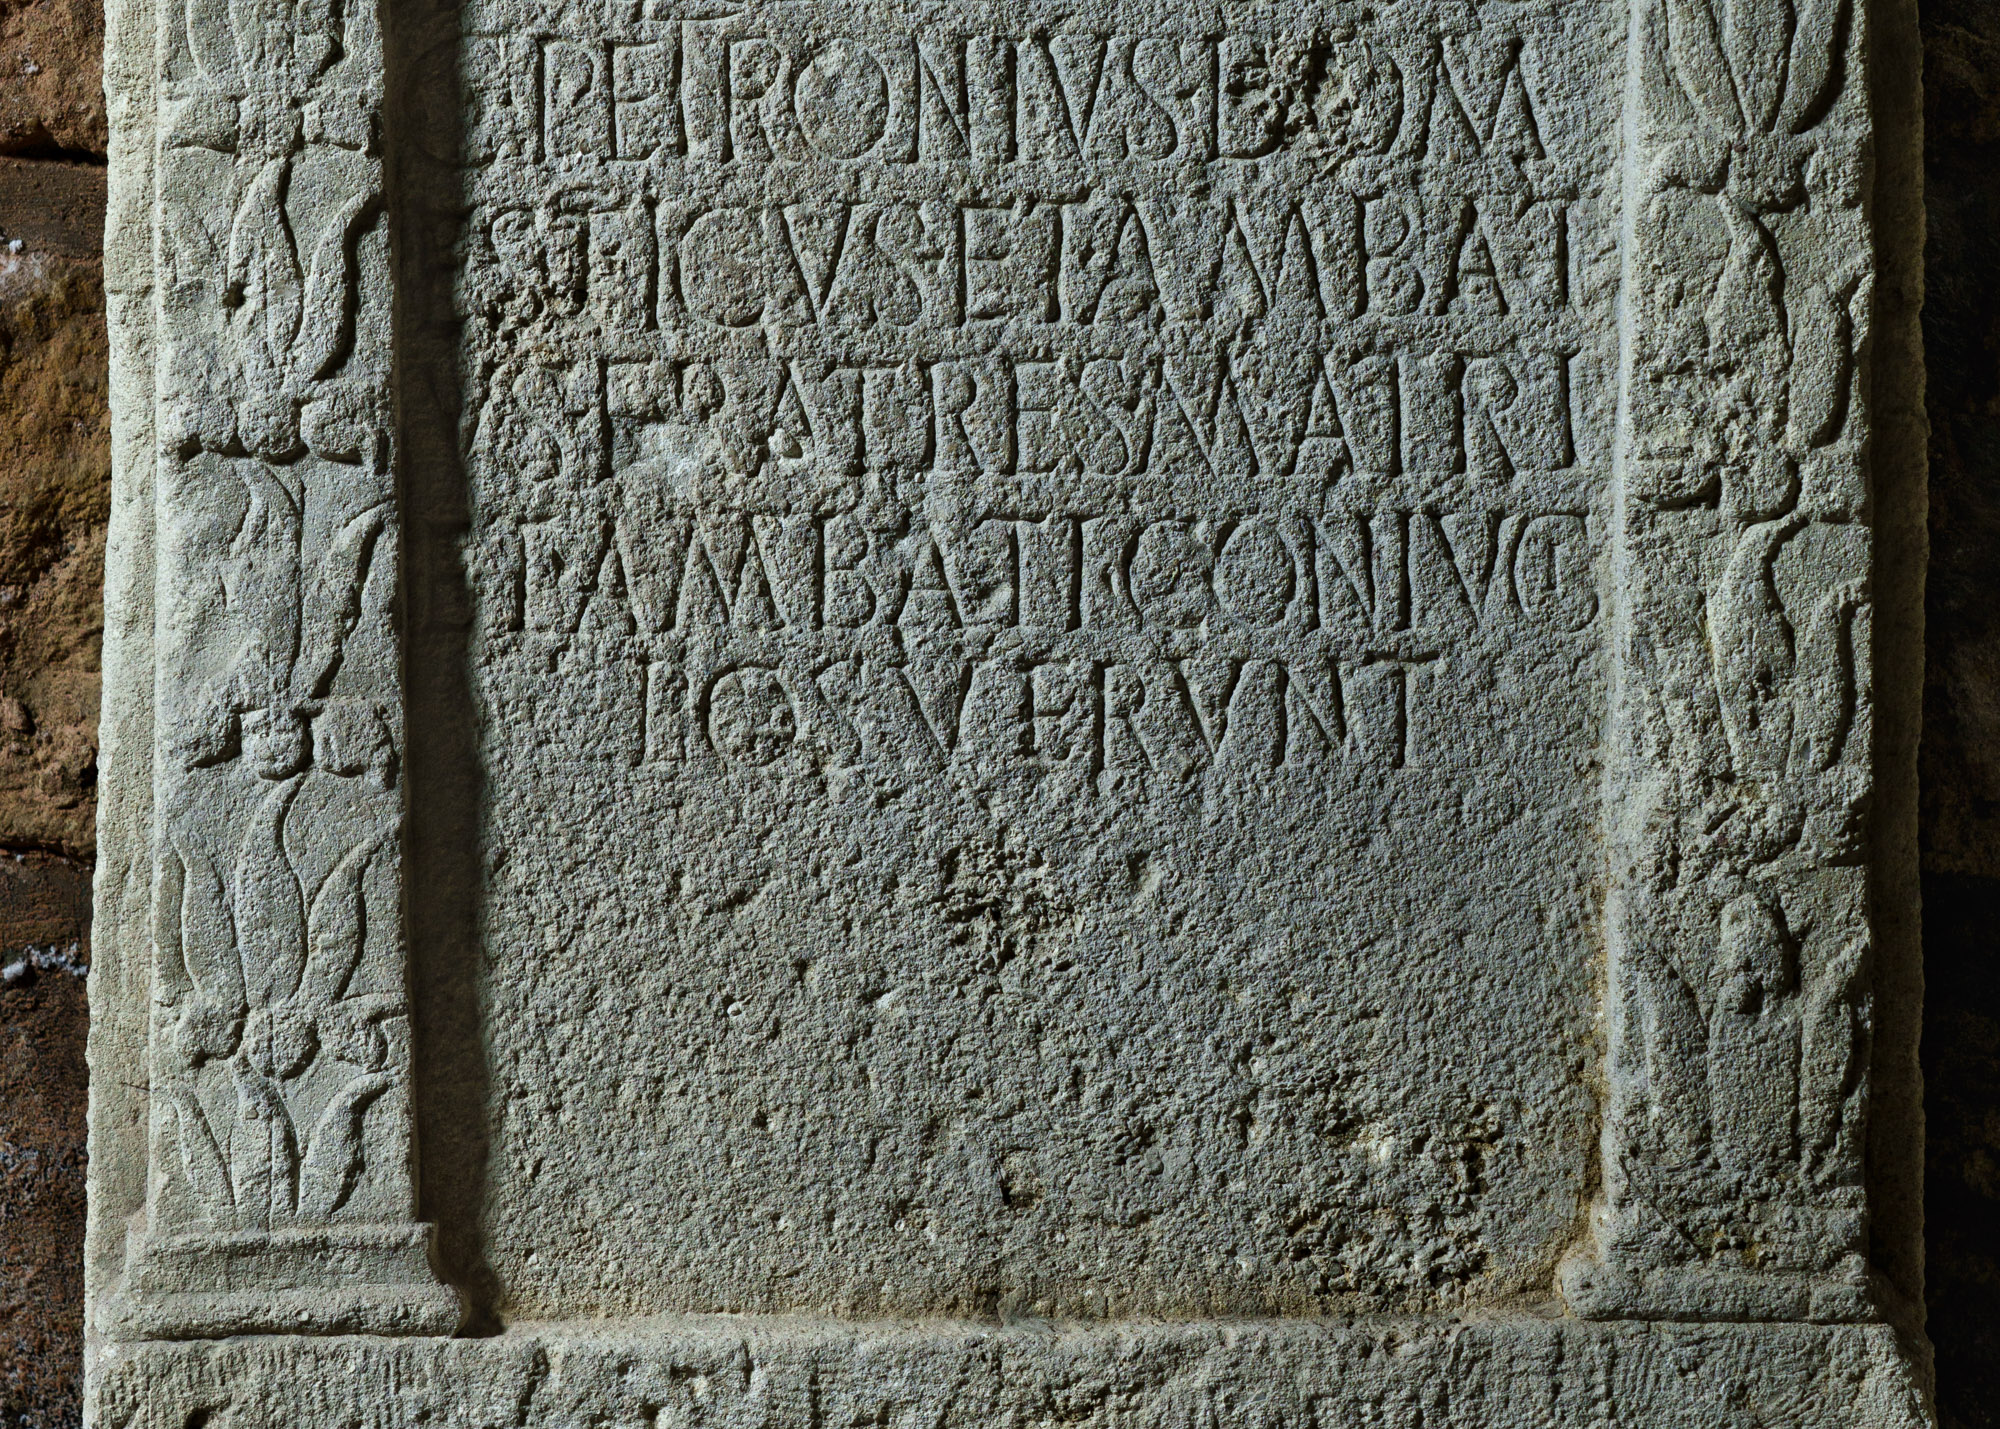 C PETRONIVS DOM
ESTICVS ET AMBAT
VS FRATRES MATRI
ET AMBATI CONIVGI
POSVERVNT